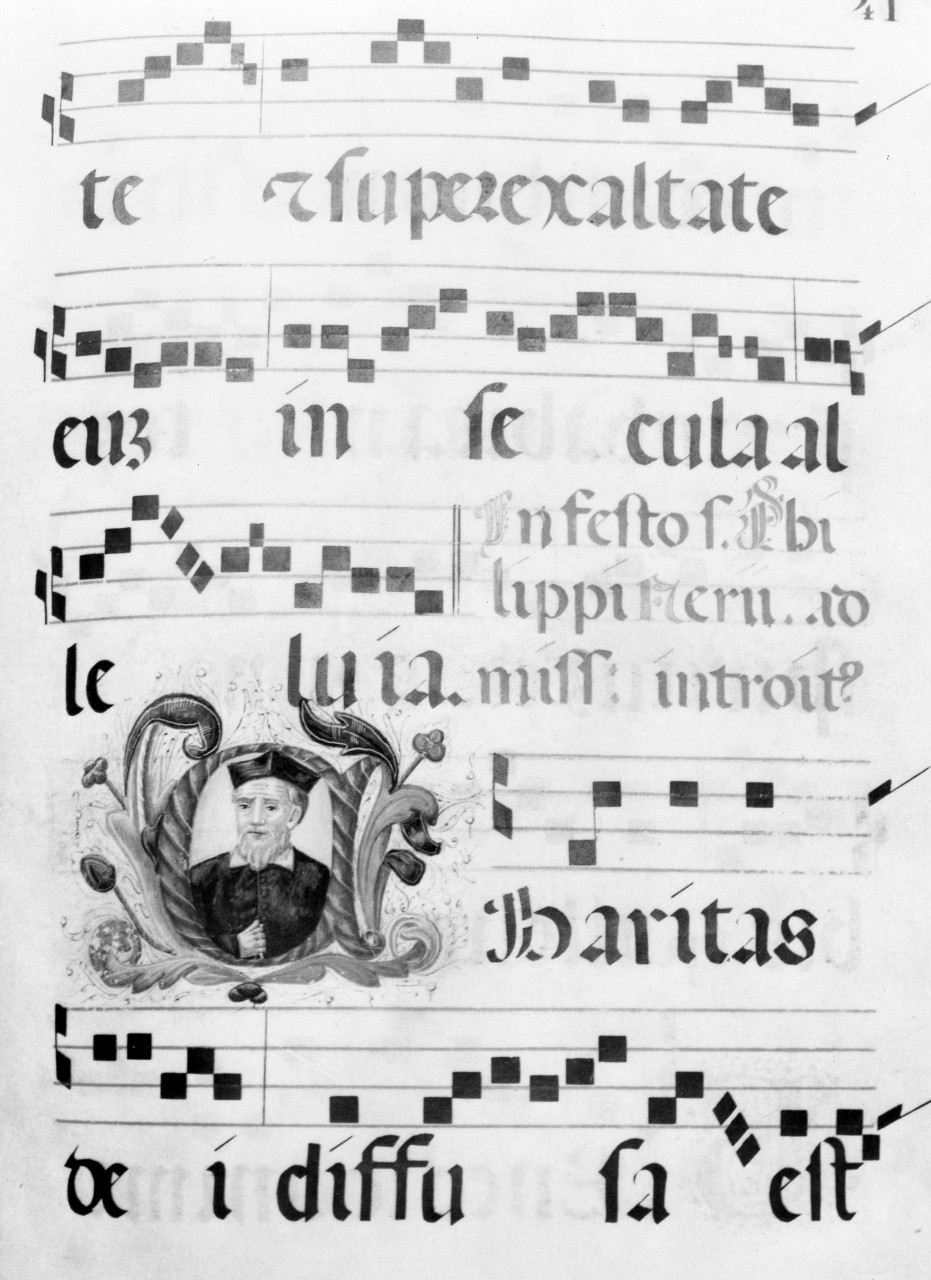 te ⁊ superexaltate
euʒ in se cula al
In festo s. Phi
lippi Nerii. ad
le lu ia. miss: introitꝰ
Haritas
de i diffu sa est